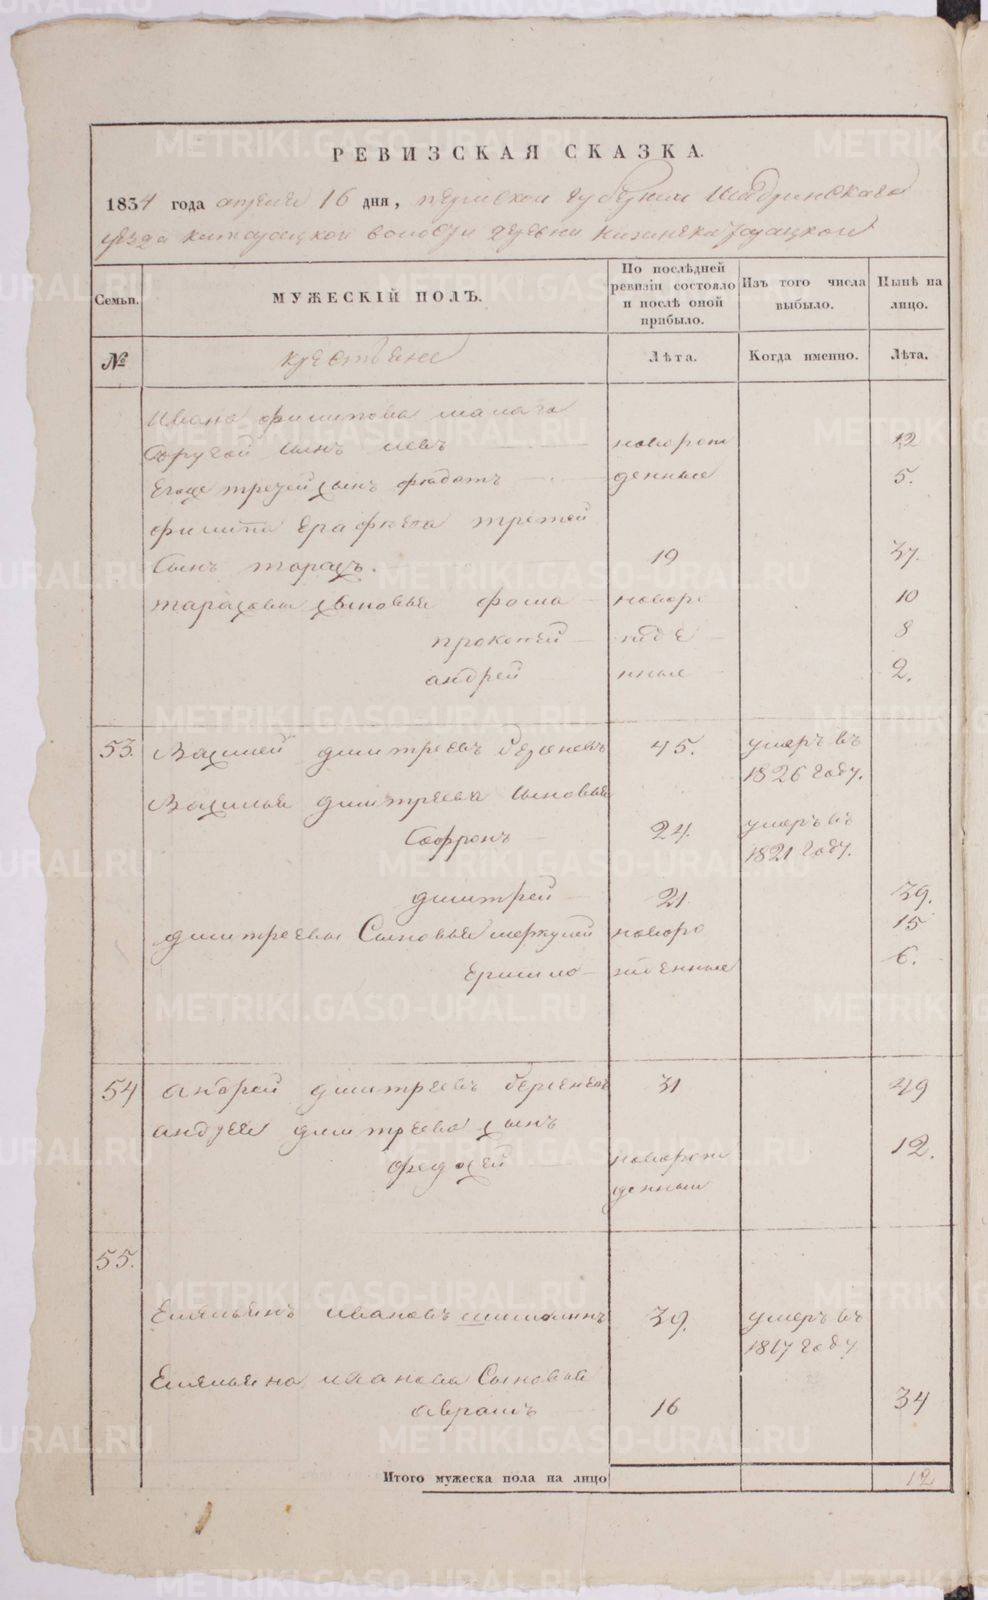 РЕВИЗСКАЯ СКАЗКА.
1834 года апреля 16 дня, пермской губернии Шадринскаго
уезда катайской волости деревни
Семьи. МУЖЕСКІЙ ПОЛЪ. По послѣдней ревизіи состояло и послѣ оной прибыло. Изъ того числа выбыло. Нынѣ на лицо.
№ крестьяне Лѣта. Когда именно. Лѣта.
Ивана филипова
другой сынъ левъ новорож 12
Егоже третей сынъ федотъ денные 5.
филипа ерафеева третей
Сынъ тарасъ. 19 37.
тарасовы сыновья фома новоро 10
прокопей жде 8
андрей нные 2.
53. Василей дмитреевъ 45. умеръ въ
1826 году.
Василья дмитреева сыновья
Софронъ 24. умеръ въ
1821 году.
дмитрей 21 39.
дмитреевы Сыновья меркулей новоро 15
Ермило жденные 6.
54 андрей дмитреевъ 31 49
андрея дмитреева сынъ
федосей новорож 12.
денный
55.
Емельянъ ивановъ 39. умеръ въ
1817 году
Емельяна иванова Сыновья
аврамъ 16 34
Итого мужеска пола на лицо 12
METRIKI.GASO-URAL.RU